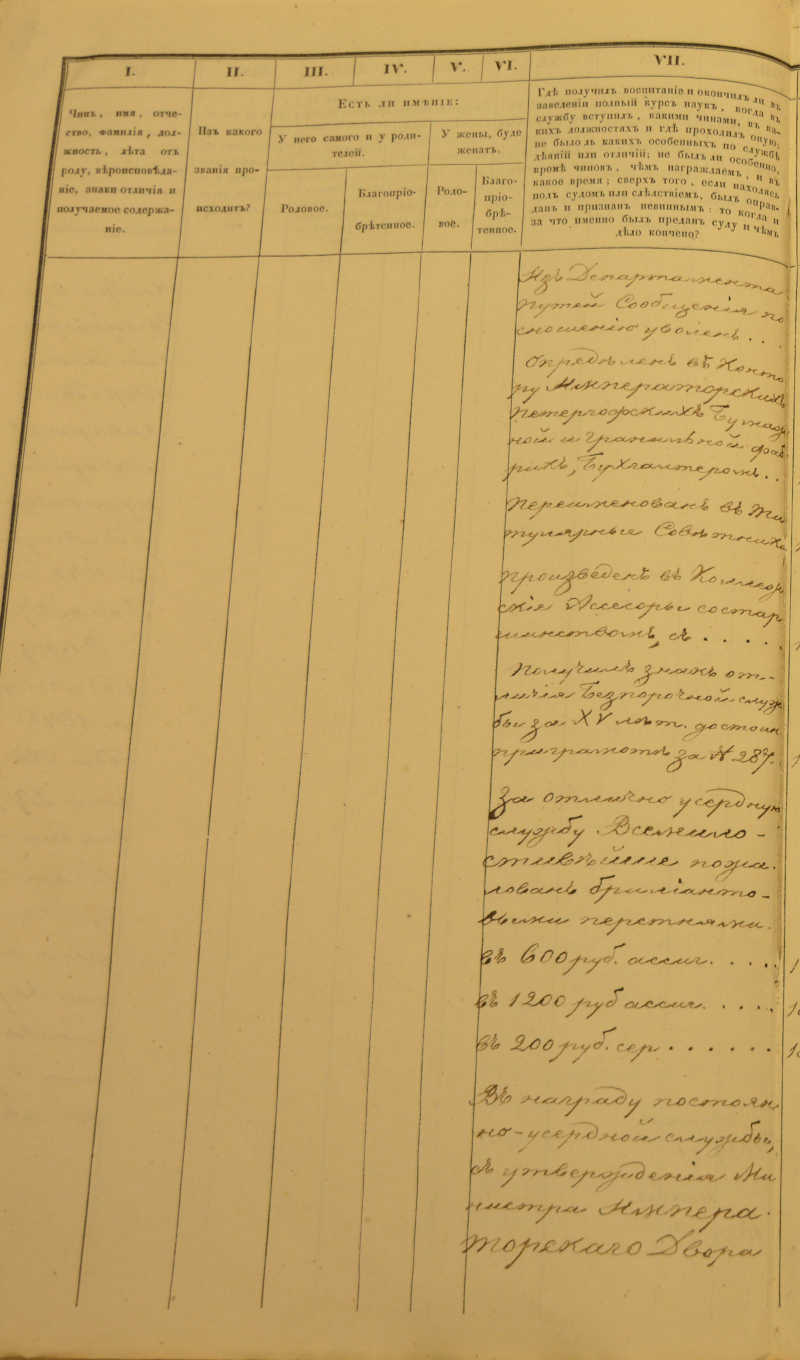 I.
II.
III.
IV.
V.
VI.
VII.
Чинъ, имя, отче-
ство, фамилія, дол-
жность, лѣта отъ
роду, вѣроисповѣда-
ніе, знаки отличія и
получаемое содержа-
ніе.
Изъ какого
званія про-
исходитъ?
Есть ли имѣніе:
У него самого и у роди-
телей.
У жены, буде
женатъ.
Родовое.
Благопріо-
брѣтенное.
Родо-
вое.
Благо-
пріо-
брѣ-
тенное.
Гдѣ получилъ воспитаніе и окончилъ ли въ
заведеніи полный курсъ наукъ, когда въ
службу вступилъ, какими чинами, въ ка-
кихъ должностяхъ и гдѣ проходилъ оную;
не было ль какихъ особенныхъ по службѣ
дѣяній или отличій; не былъ ли особенно,
кромѣ чиновъ, чѣмъ награждаемъ, и въ
какое время; сверхъ того, если находясь
подъ судомъ или слѣдствіемъ, былъ оправ-
данъ и признанъ невиннымъ: то когда и
за что именно былъ преданъ суду и чѣмъ
дѣло кончено?
Изъ Департамента
Путей Сообщенія, по
уволенъ . . .
Опредѣленъ въ Конто-
ру Императорскихъ
Петергофскихъ Бумаж-
ной и Гранильной фаб-
рикъ, Бухгалтеромъ . .
Переименованъ въ Ти-
тулярные Совѣтники
произведенъ въ Коллеж-
скіе Ассесоры со стар-
шинствомъ съ . . . .
Получилъ знакъ от-
личія безпорочной служ-
бы за XV лѣтъ, при
грамотѣ за № 287.
За отлично усердную
службу Всемило-
стивѣйше пожа-
лованъ брилліанто-
выми перстнями.
въ 600 руб. ассиг. . . . .
въ 1200 руб ассиг. . . . .
въ 200 руб. сер. . . . . .
Въ награду постоян-
но-усердной службы,
съ утвержденія Ми-
нистра Импера-
торскаго Двора